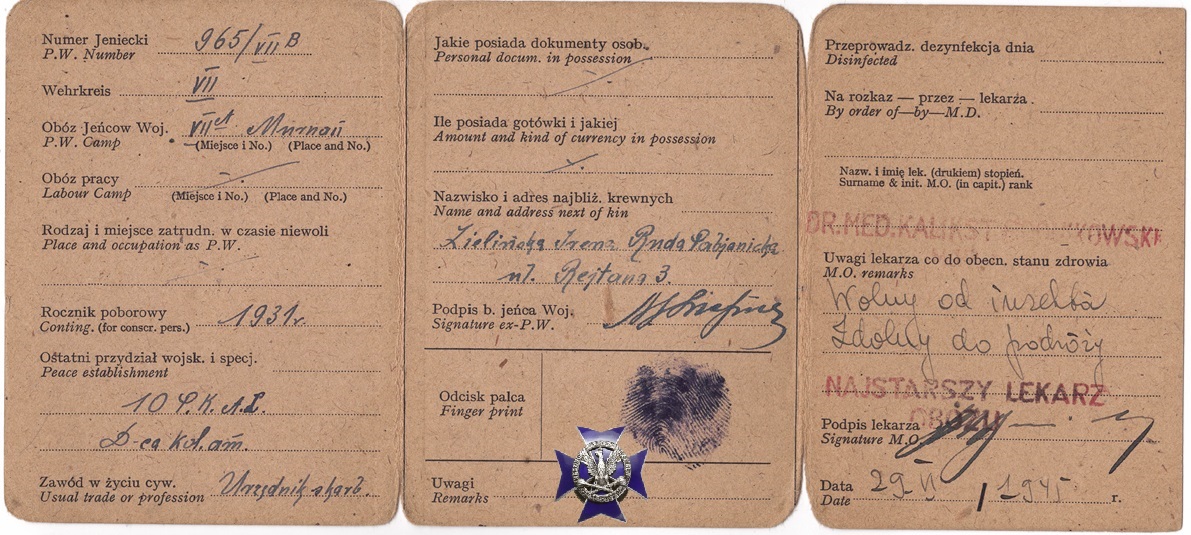 Numer Jeniecki 965/VII B
P.W. Number
Wehrkreis VII
Obóz Jeńcow Woj. VII A Murnau
P.W. Camp (Miejsce i No.) (Place and No.)
Obóz pracy
Labour Camp (Miejsce i No.) (Place and No.)
Rodzaj i miejsce zatrudn. w czasie niewoli
Place and occupation as P.W.
Rocznik poborowy 1931r.
Conting. (for conscr. pers.)
Ostatni przydział wojsk. i specj.
Peace establishment
10 P.K.A.L.
D-ca kol. am.
Zawód w życiu cyw. Urzędnik skarb.
Usual trade or profession
Jakie posiada dokumenty osob.
Personal docum. in possession
Ile posiada gotówki i jakiej
Amount and kind of currency in possession
Nazwisko i adres najbliż. krewnych
Name and address next of kin
Zielińska Irena Ruda Pabjanicka
ul. Rejtana 3.
Podpis b. jeńca Woj.
Signature ex-P.W.
Odcisk palca
Finger print
Uwagi
Remarks
Przeprowadz. dezynfekcja dnia
Disinfected
Na rozkaz — przez — lekarza
By order of—by—M.D.
Nazw. i imię lek. (drukiem) stopień.
Surname & init. M.O. (in capit.) rank
DR. MED. KALIKST
Uwagi lekarza co do obecn. stanu zdrowia
M.O. remarks
Wolny od
Zdolny do podróży
NAJSTARSZY LEKARZ
OBOZU
Podpis lekarza
Signature M.O.
Data 29 VI 1945 r.
Date